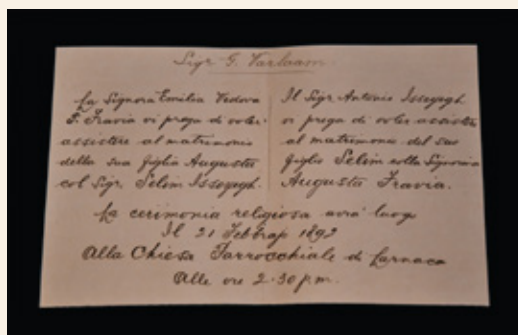 Sigr G. Varlaam
La Signora Emilia Vedova
P. Fravia vi prega di voler
assistere al matrimonio
della sua figlia Augusta
col Sigr. Selim Isseyegh.
Il Sigr Antonio Isseyegh
vi prega di voler assistere
al matrimonio del suo
figlio Selim colla Signorina
Augusta Fravia.
La cerimonia religiosa avrà luogo
Il 21 1892
Alla Chiesa Parrocchiale di Larnaca
Alle ore 2.30 p.m.